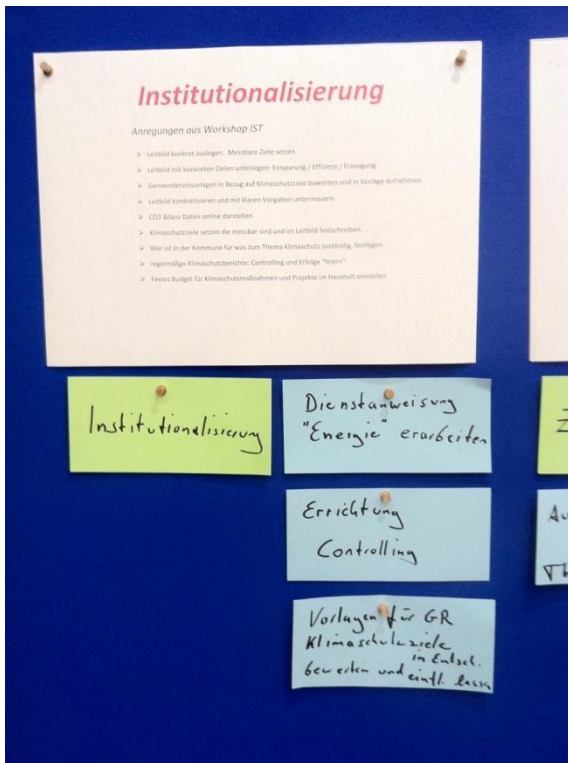 Institutionalisierung
Anregungen aus Workshop IST
➢ Leitbild konkret auslegen. Messbare Ziele setzen
➢ Leitbild mit konkreten Zielen unterlegen: Einsparung / Effizienz / Erzeugung
➢ Gemeinderatsvorlagen in Bezug auf Klimaschutzziele bewerten und in Vorlage aufnehmen
➢ Leitbild konkretisieren und mit klaren Vorgaben untermauern
➢ CO2 Bilanz Daten online darstellen
➢ Klimaschutzziele setzen die messbar sind und im Leitbild festschreiben.
➢ Wer ist in der Kommune für was zum Thema Klimaschutz zuständig, festlegen.
➢ regelmäßige Klimaschutzberichte: Controlling und Erfolge "feiern"
➢ Festes Budget für Klimaschutzmaßnahmen und Projekte im Haushalt einstellen.
Institutionalisierung
Dienstanweisung
"Energie" erarbeiten
Errichtung
Controlling
Vorlagen für GR
Klimaschutzziele
in Entsch.
bewerten und einfl. lassen
Au
Th